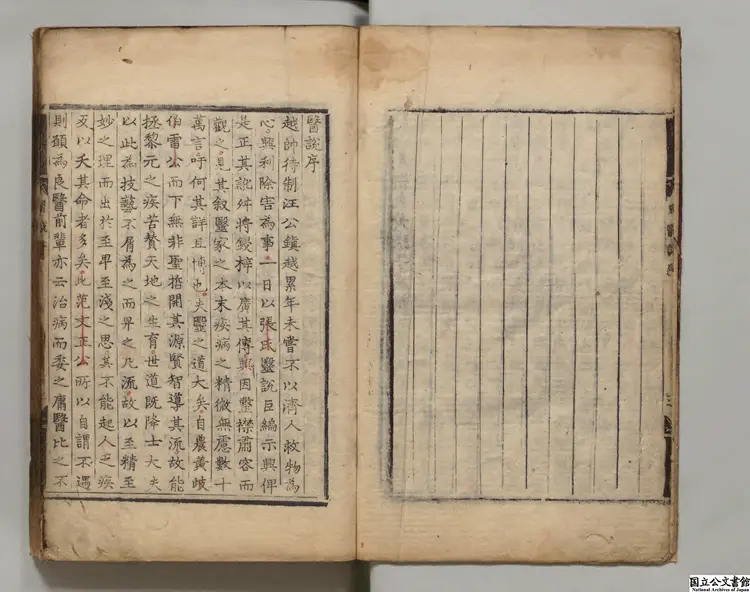 醫說序
越帥待制汪公鎭越累年未嘗不以濟人救物為
心興利除害為事一日以張氏醫說巨編示興俾
是正其訛舛將鋟梓以廣其傳興因整襟肅容而
觀之見其叙醫家之本末疾病之精微無慮數十
萬言吁何其詳且博也夫醫之道大矣自農黃岐
伯雷公而下無非聖哲開其源賢智導其流故能
拯黎元之疾苦賛天地之生育世道既降士大夫
以此為技藝不屑為之而畀之凡流故以至精至
妙之理而出於至卑至淺之思其不能起人之疾
反以夭其命者多矣此范文正公所以自謂不遇
則願為良醫前輩亦云治病而委之庸醫比之不
国立公文書館
National Archives of Japan